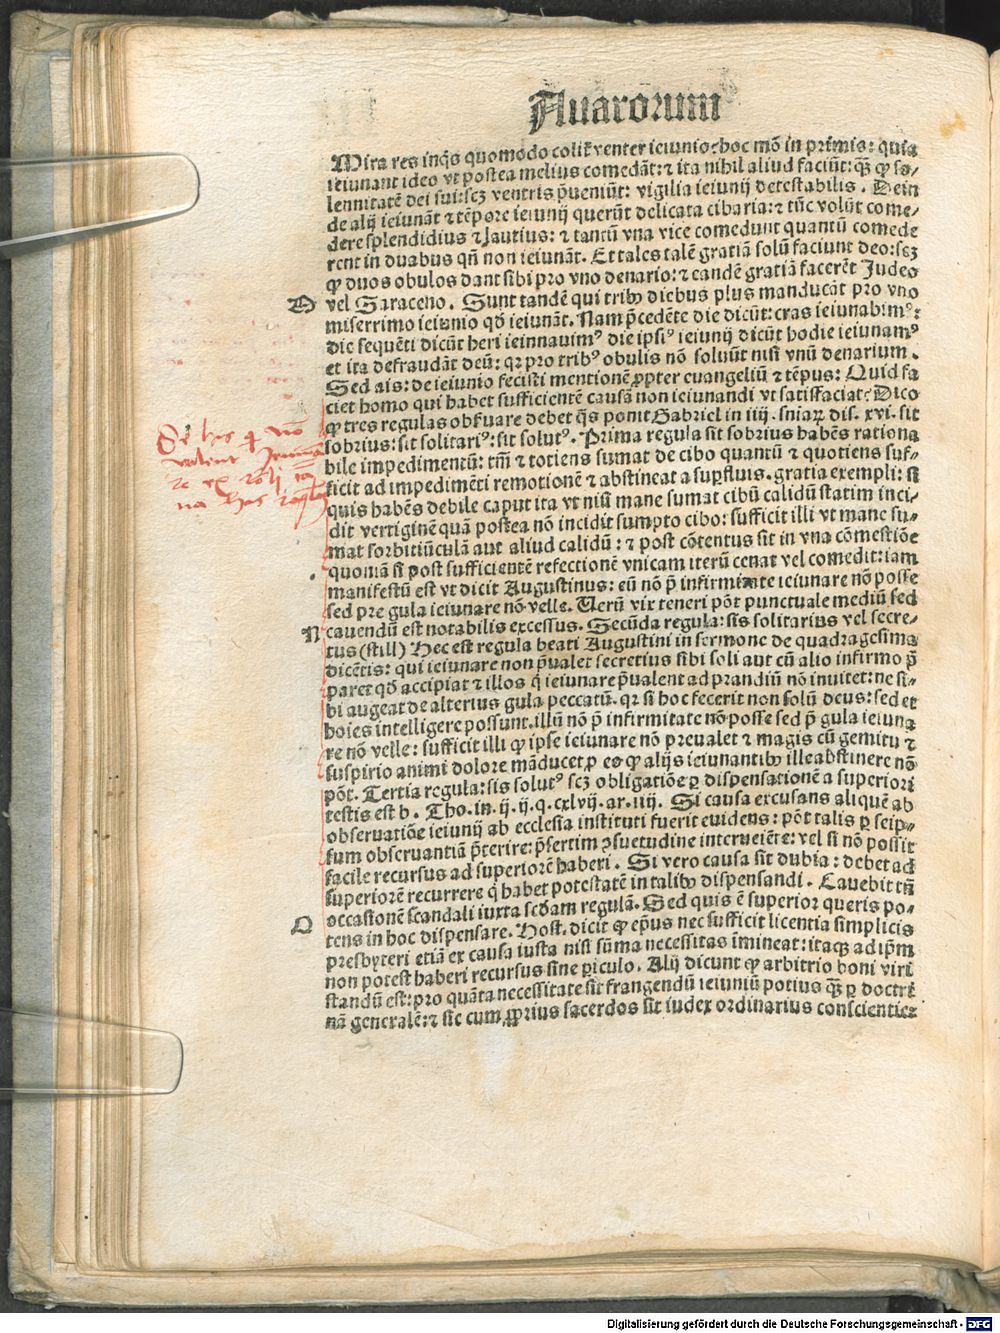 Auarorum
Mira res inq̃s quomodo colit̃ venter ieiunio: hoc mõ in primis: quia
ieiunant ideo vt postea melius comedãt: ⁊ ita nihil aliud faciũt: q̃ꝫ ꝙ so⸗
lennitatẽ dei sui: scꝫ ventris p̃ueniũt: vigilia ieiunij detestabilis. Dein
de alij ieiunãt ⁊ tẽpore ieiunij querũt delicata cibaria: ⁊ tũc volũt come⸗
dere splendidius ⁊ lautius: ⁊ tantũ vna vice comedunt quantũ comede
rent in duabus qñ non ieiunãt. Et tales talẽ gratiã solũ faciunt deo: scꝫ
ꝙ duos obulos dant sibi pro vno denario: ⁊ eandẽ gratiã facerẽt Judeo
O vel Saraceno. Sunt tandẽ qui tribꝰ diebus plus manducãt pro vno
miserrimo ieiunio qd̃ ieiunãt. Nam p̃cedẽte die dicũt: cras ieiunabimꝰ:
die sequẽti dicũt heri ieiunauimꝰ die ipsiꝰ ieiunij dicũt hodie ieiunamꝰ
et ita defraudãt deũ: qꝛ pro tribꝰ obulis nõ soluũt nisi vnũ denarium.
Sed ais: de ieiunio fecisti mentionẽ ꝓpter euangeliũ ⁊ tẽpus: Quid fa
ciet homo qui habet sufficientẽ causã non ieiunandi vt satisfaciat? Dico
ꝙ tres regulas obſuare debet q̃s ponit Gabriel in iiij. sniaꝝ dis. xvi. sit
sobrius: sit solitariꝰ: sit solutꝰ. Prima regula sit sobrius habẽs rationa
bile impedimentũ: tm̃ ⁊ totiens sumat de cibo quantũ ⁊ quotiens suf⸗
ficit ad impedimẽti remotionẽ ⁊ abstineat a supfluis. gratia exempli: si
quis habẽs debile caput ita vt nisi mane sumat cibũ calidũ statim inci⸗
dit vertiginẽ quã postea nõ incidit sumpto cibo: sufficit illi vt mane su⸗
mat sorbitiũculã aut aliud calidũ: ⁊ post cõtentus sit in vna cõmestiõe
quoniã si post sufficientẽ refectionẽ vnicam iterũ cenat vel comedit: iam
manifestũ est vt dicit Augustinus: eũ nõ p̃ infirmitate ieiunare nõ posse
sed pre gula ieiunare nõ velle. Verũ vix teneri põt punctuale mediũ sed
N cauendũ est notabilis excessus. Secũda regula: sis solitarius vel secre⸗
tus (still) Hec est regula beati Augustini in sermone de quadragesima
dicẽtis: qui ieiunare non p̃ualet secretius sibi soli aut cũ alio infirmo p̃
paret qd̃ accipiat ⁊ illos q̃ ieiunare p̃ualent ad prandiũ nõ inuitet: ne si⸗
bi augeat de alterius gula peccatũ. qꝛ si hoc fecerit non solũ deus: sed et
hoies intelligere possunt. illũ nõ p̃ infirmitate nõ posse sed p̃ gula ieiuna
re nõ velle: sufficit illi ꝙ ipse ieiunare nõ preualet ⁊ magis cũ gemitu ⁊
suspirio animi dolore mãducet, ꝑ eo ꝙ alijs ieiunantibꝰ ille abstinere nõ
põt. Tertia regula: sis solutꝰ scꝫ obligatiõe ꝑ dispensationẽ a superiori
testis est b. Tho. in. ij. ij. q. cxlvij. ar. iiij. Si causa excusans aliquẽ ab
obseruatiõe ieiunij ab ecclesia instituti fuerit euidens: põt talis ꝑ seip⸗
sum obseruantiã p̃terire: p̃sertim ꝯsuetudine interueiẽte: vel si nõ possit
facile recursus ad superiorẽ haberi. Si vero causa sit dubia: debet ad
superiorẽ recurrere q̃ habet potestatẽ in talibꝰ dispensandi. Cauebit tñ
occasionẽ scandali iuxta scd̃am regulã. Sed quis ẽ superior queris po⸗
O tens in hoc dispensare. Host. dicit ꝙ ep̃us nec sufficit licentia simplicis
presbyteri etiã ex causa iusta nisi sũma necessitas ĩmineat: itaqꝫ ad ip̃m
non potest haberi recursus sine ꝑiculo. Alij dicunt ꝙ arbitrio boni viri
standũ est: pro quãta necessitate sit frangendũ ieiuniũ potius q̃ꝫ ꝑ doctri
nã generalẽ: ⁊ sic cum ꝓprius sacerdos sit iudex ordinarius conscientie:
Digitalisierung gefördert durch die Deutsche Forschungsgemeinschaft - DFG